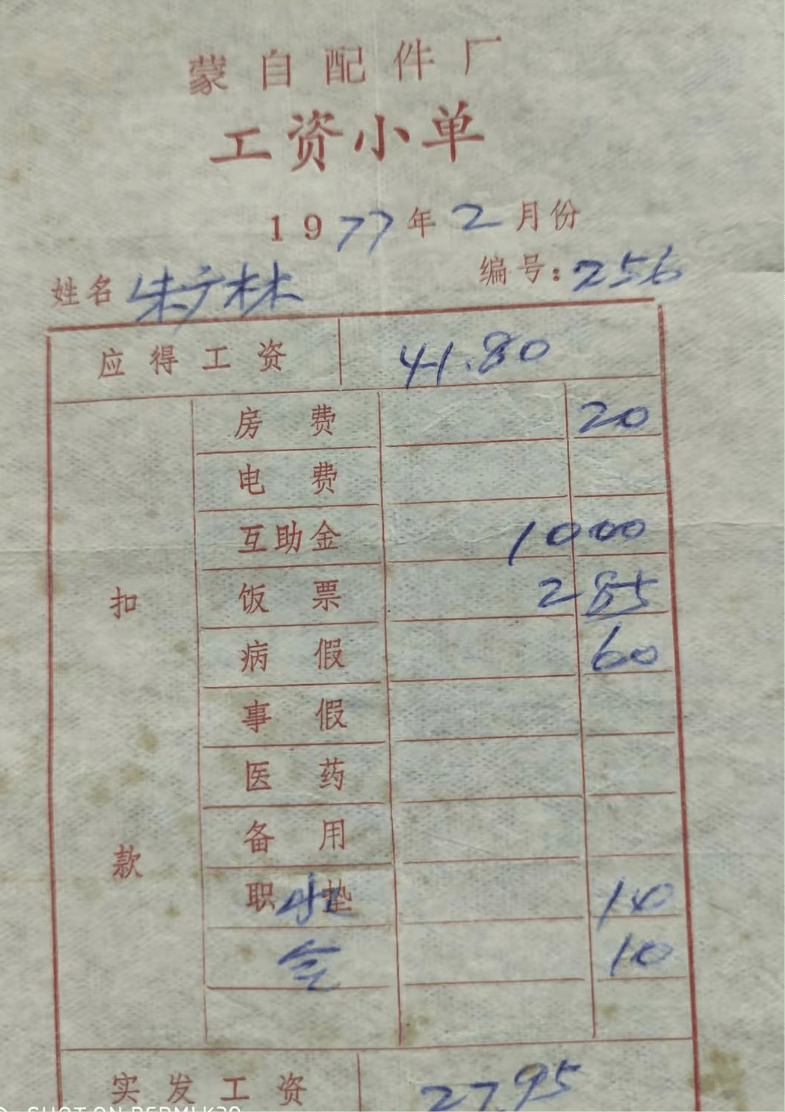 蒙自配件厂
工资小单
1977年2月份
姓名 朱广林 编号:256
应得工资 41.80
扣款
房费 20
电费
互助金 10 00
饭票 2 85
病假 60
事假
医药
备用
职垫 水 10
会 10
实发工资 27.95
SHOT ON REDMI K30